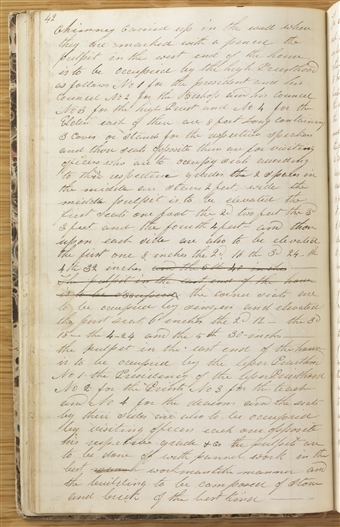 42
Chimney carried up in the wall where
they are marked with a pencil the
pulpit in the west end of the house
is to be occupied by the high Priesthood
as follows No 1 for the President and his
Council No 2 for the Bishop and his Council
No 3 for the high Priest and No 4 for the
Elders each of these are 8 feet long containing
3 Coves or Stands for the respective speakers
and those seats opposite them are for visiting
officers who are to occupy seats according
to their respective grades the 2 spaces in
the middle are stairs 2 feet wide the
middle pulpit is to be elevated the
first seats one foot the 2d two feet the 3d
3 feet and the fourth 4 feet and those
upon each side are also to be elevated
the first one 8 inches the 2d 16 the 3d 24 the
4th 32 inches
The pulpit in the east end of the house
is to be occupied the corner seats are
to be occupied by singers and elevated
the first seat 6 inches the 2d 12 the 3d
18 the 4 24 and the 5th 30 inches
the pulpit in the east end of the house
is to be occupied by the lesser Priesthood
No 1 the Presidency of the lesser Priesthood
No 2 for the Priests No 3 for the Teachers
and No 4 for the deacons and the seats
by their sides are also to be occupied
by visiting officers each one opposite
his respective grade &c the pulpits are
to be done off with pannel work in the
best workmanlike manner and
the building to be composed of stone
and brick of the best kind